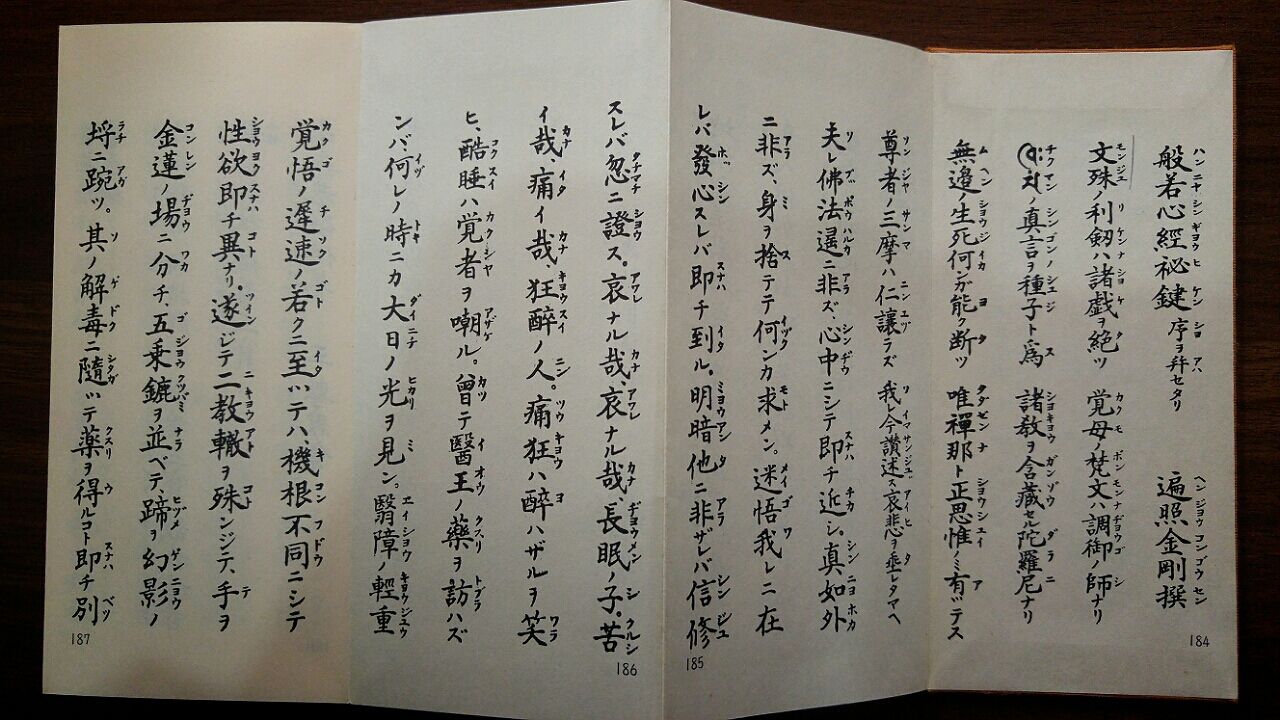 般若心經祕鍵 序ヲ幷セタリ 遍照金剛撰
文殊ノ利劒ハ諸戯ヲ絶ツ 覚母ノ梵文ハ調御ノ師ナリ
ノ真言ヲ種子ト爲ス 諸教ヲ含蔵セル陀羅尼ナリ
無邉ノ生死何ンガ能ク断ツ 唯禪那ト正思惟ノミ有ッテス
184
尊者ノ三摩ハ仁讓ラズ 我レ今讃述ス哀悲ヲ埀レタマヘ
夫レ佛法遥ニ非ズ、心中ニシテ即チ近シ。真如外
ニ非ズ、身ヲ捨テテ何ンカ求メン。迷悟我レニ在
レバ發心スレバ即チ到ル。明暗他ニ非ザレバ信修
185
スレバ忽ニ證ス。哀ナル哉、哀ナル哉、長眠ノ子。苦
イ哉、痛イ哉、狂醉ノ人。痛狂ハ醉ハザルヲ笑
ヒ、酷睡ハ覚者ヲ嘲ル。曾テ醫王ノ藥ヲ訪ハズ
ンバ、何レノ時ニカ大日ノ光ヲ見ン。翳障ノ輕重
186
覚悟ノ遅速ノ若クニ至ッテハ、機根不同ニシテ
性欲即チ異ナリ。遂ジテ二教轍ヲ殊ンジテ、手ヲ
金蓮ノ場ニ分チ、五乗鑣ヲ並ベテ、蹄ヲ幻影ノ
埒ニ踠ツ。其ノ解毒ニ隨ッテ藥ヲ得ルコト即チ別
187